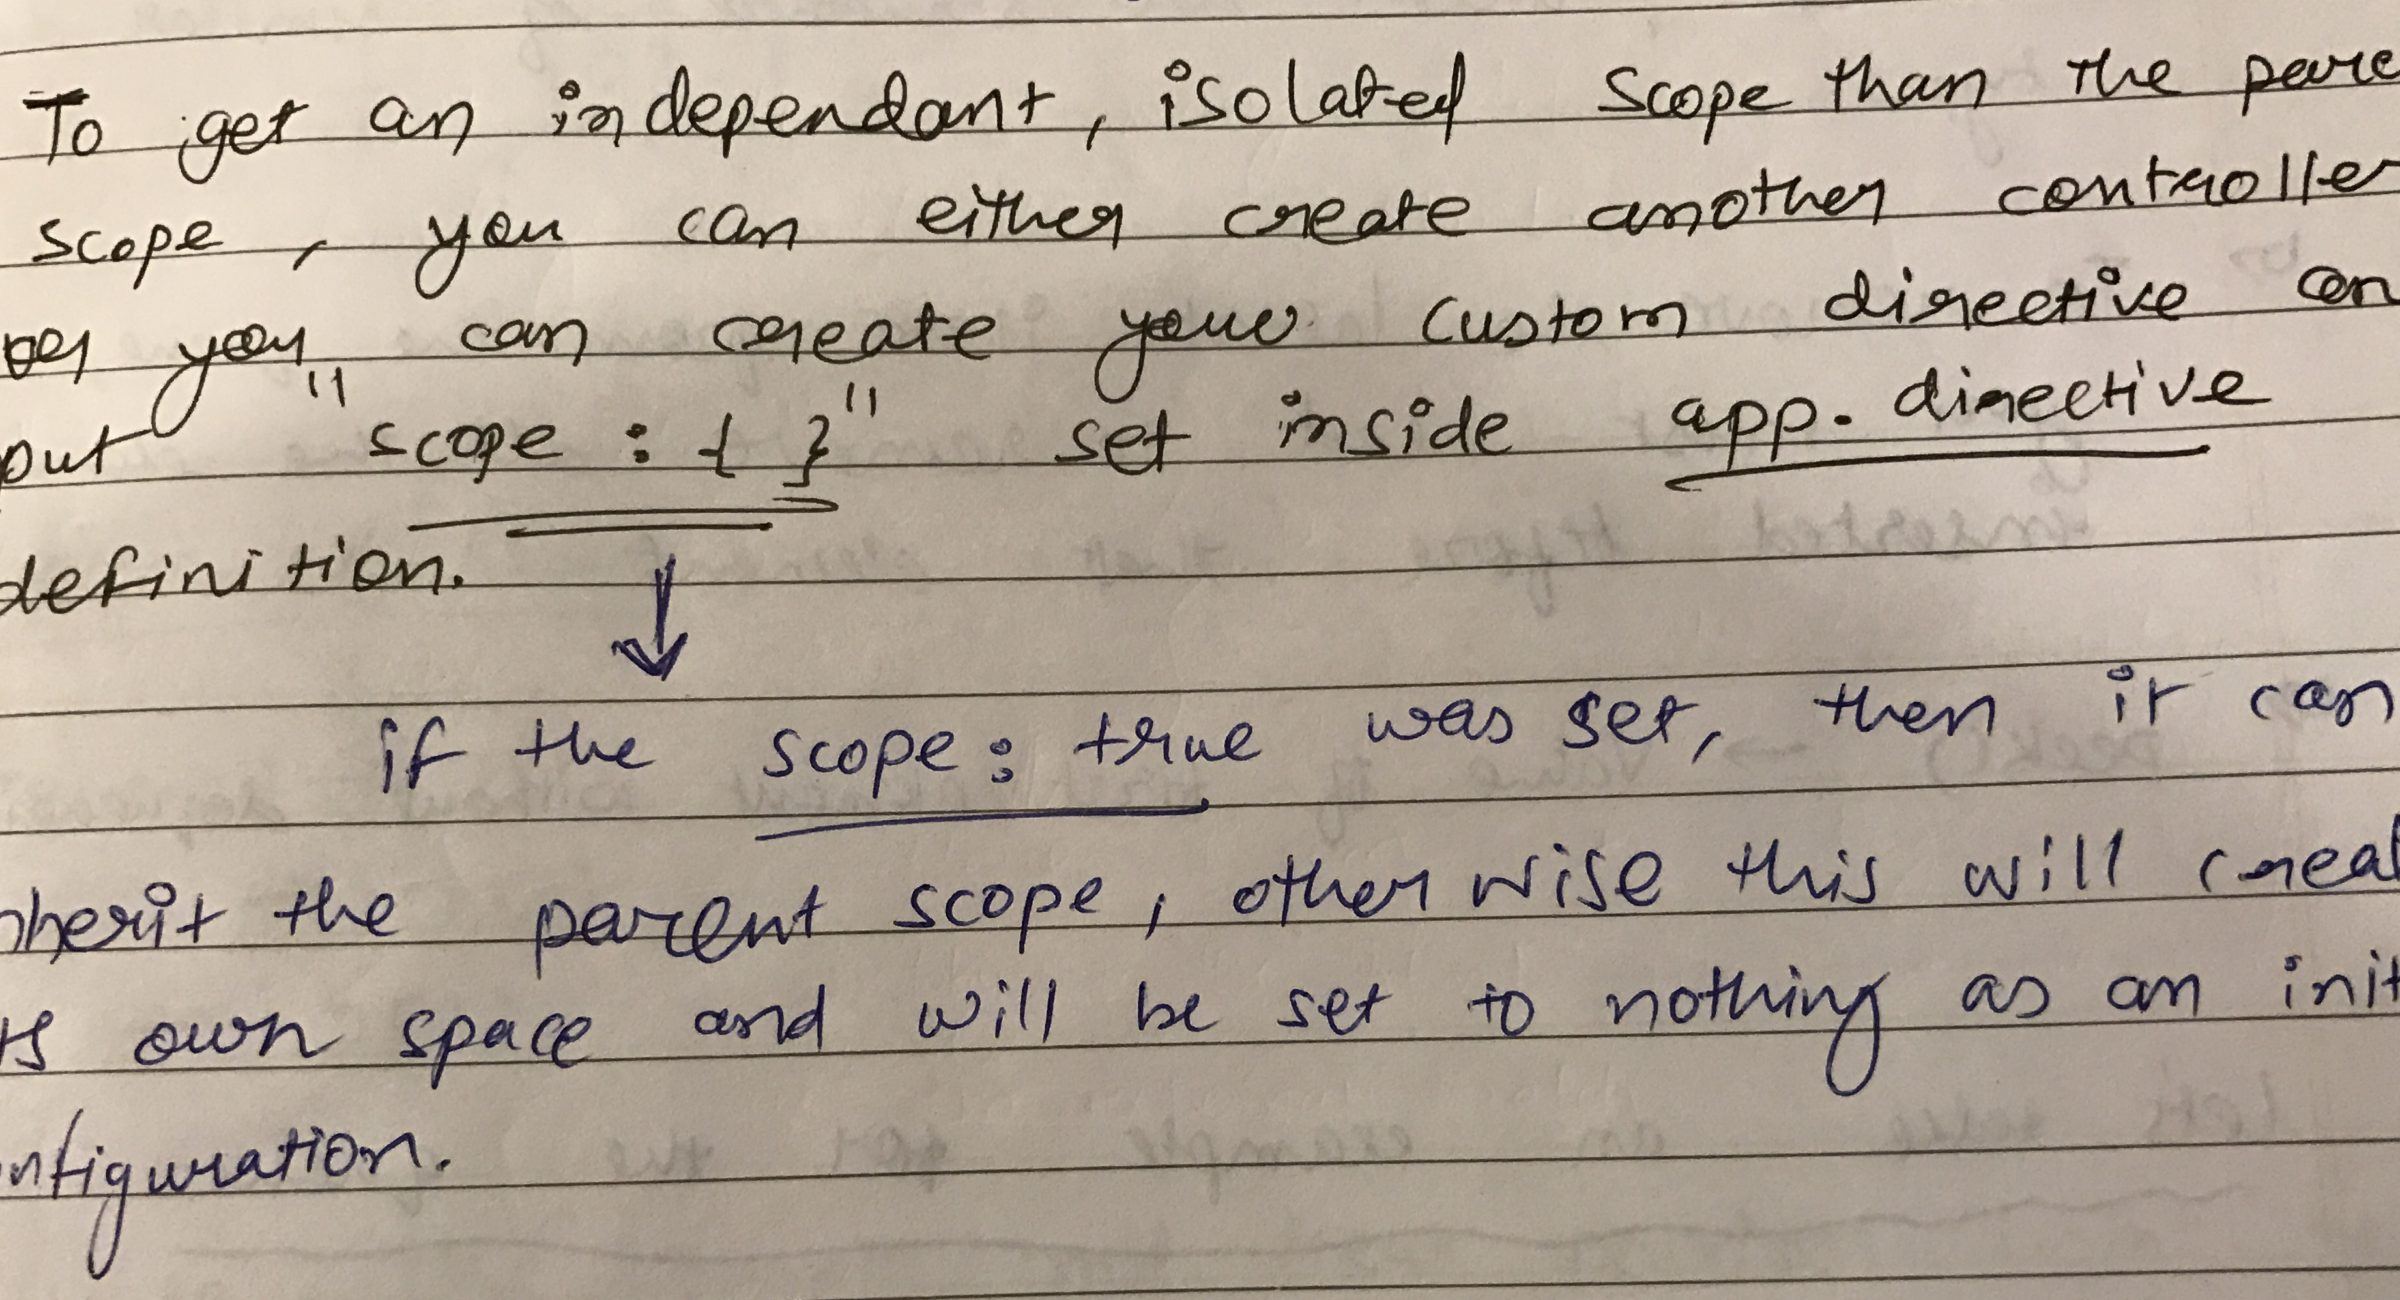 To get an independant, isolated scope than the pare
scope, you can either create another controller
or you can create your custom directive an
put "scope : { }" set inside app. directive
definition.
↓
if the scope: true was set, then it can
nherit the parent scope, otherwise this will creat
ts own space and will be set to nothing as an init
nfiguration.